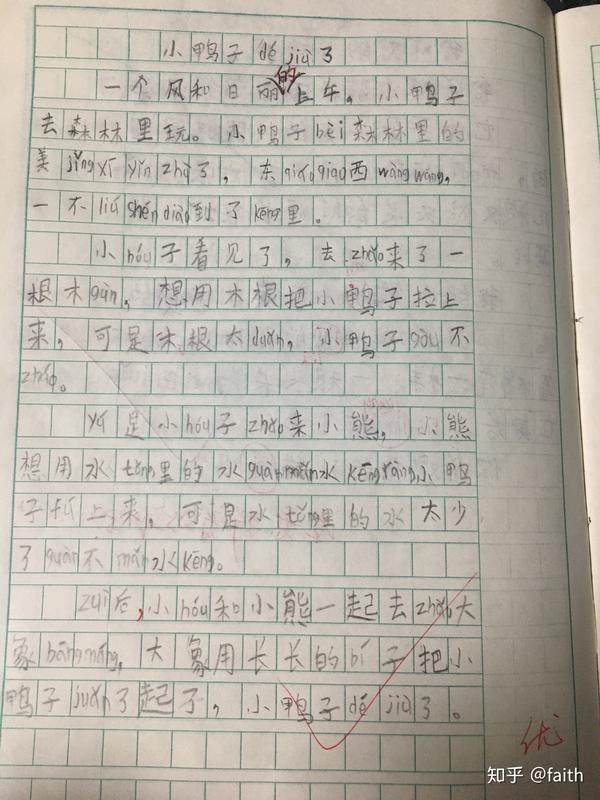 小鸭子dé jiù了
一个风和日丽的上午，小鸭子
去森林里玩。小鸭子bèi森林里的
美jǐng xī yǐn zhù了，东qiáo qiao西wàng wàng，
一不liú shén diào到了kēng里。
小hóu子看见了，去zhǎo来了一
根木gùn，想用木根把小鸭子拉上
来，可是木根太duǎn，小鸭子gòu不
zháo。
yú是小hóu子zhǎo来小熊，小熊
想用水tǒng里的水guàn mǎn水kēng ràng小鸭
子fú上来，可是水tǒng里的水太少
了guàn不mǎn水kēng。
zuì后，小hóu和小熊一起去zhǎo大
象bāng máng，大象用长长的bí子把小
鸭子juǎn了起了，小鸭子dé jiù了。
优
知乎 @faith